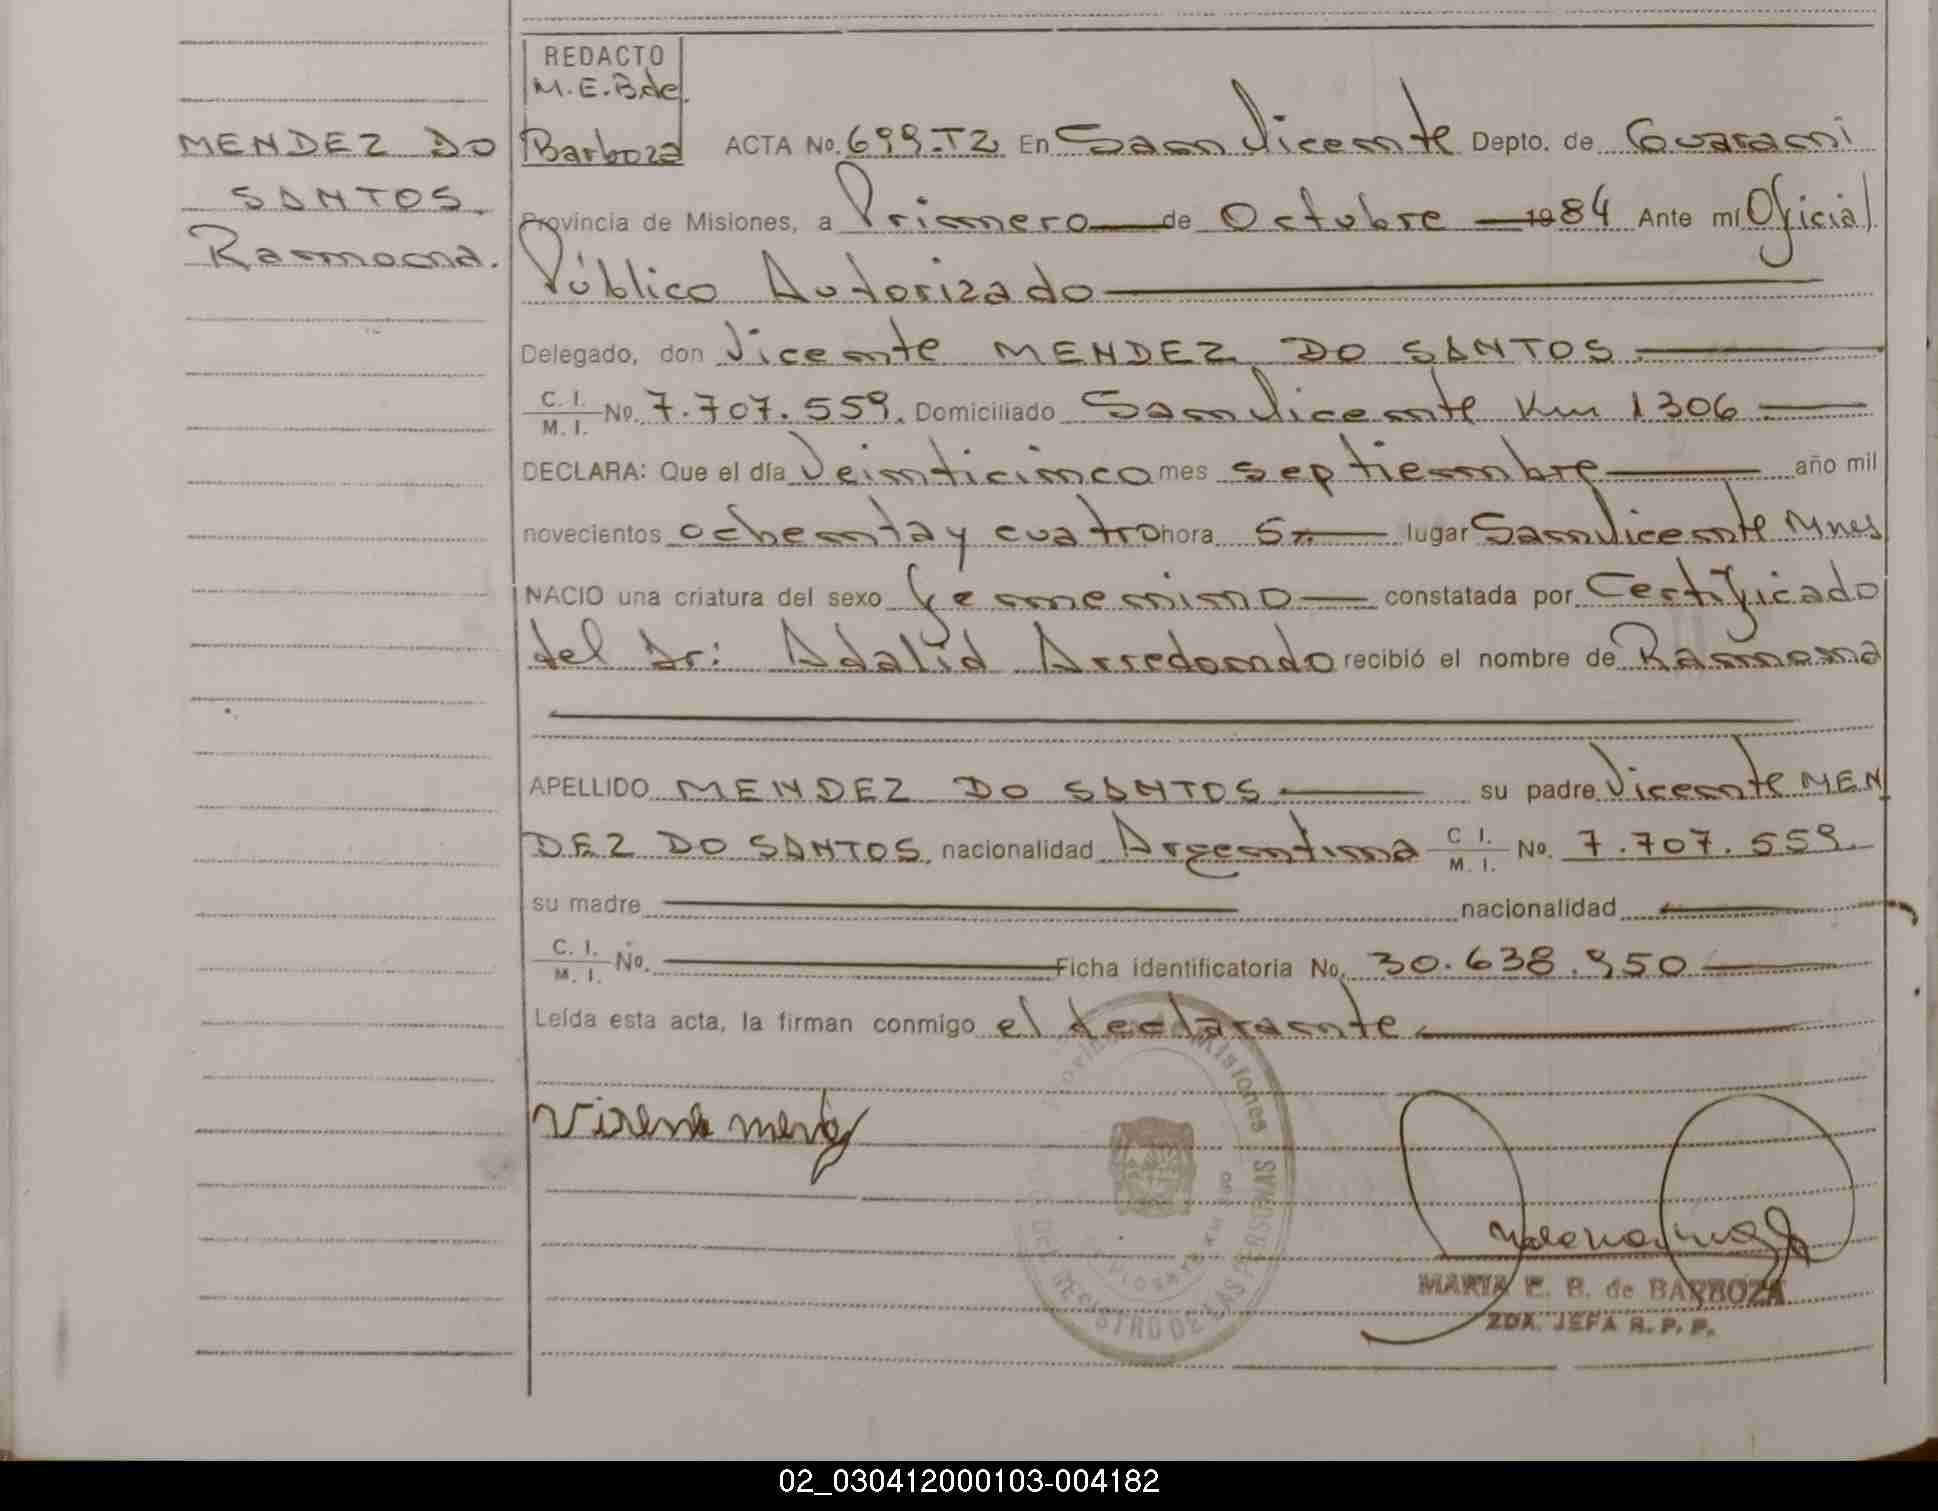 REDACTO
M.E.B.de
Barboza
MENDEZ DO
SANTOS.
Ramona.
ACTA No. 699.T2 En San Vicente Depto. de Guarani
Provincia de Misiones, a Primero de Octubre 1984 Ante mí Oficial
Público Autorizado
Delegado, don Vicente MENDEZ DO SANTOS
C. I. / M. I. No. 7.707.559. Domiciliado San Vicente Km 1306
DECLARA: Que el día Veinticinco mes septiembre año mil
novecientos ochenta y cuatro hora 5 lugar San Vicente Mnes
NACIO una criatura del sexo femenino constatada por Certificado
del Dr: Adalid Arredondo recibió el nombre de Ramona
APELLIDO MENDEZ DO SANTOS su padre Vicente MEN
DEZ DO SANTOS. nacionalidad Argentina C I. / M. I. No. 7.707.559.
su madre nacionalidad
C. I. / M. I. No. Ficha identificatoria No. 30.638.950
Leída esta acta, la firman conmigo el declarante.
Provincia Misiones
DEL REGISTRO DE LAS PERSONAS
MARIA E. B. de BARBOZA
2DA. JEFA R. P. P.
02_030412000103-004182